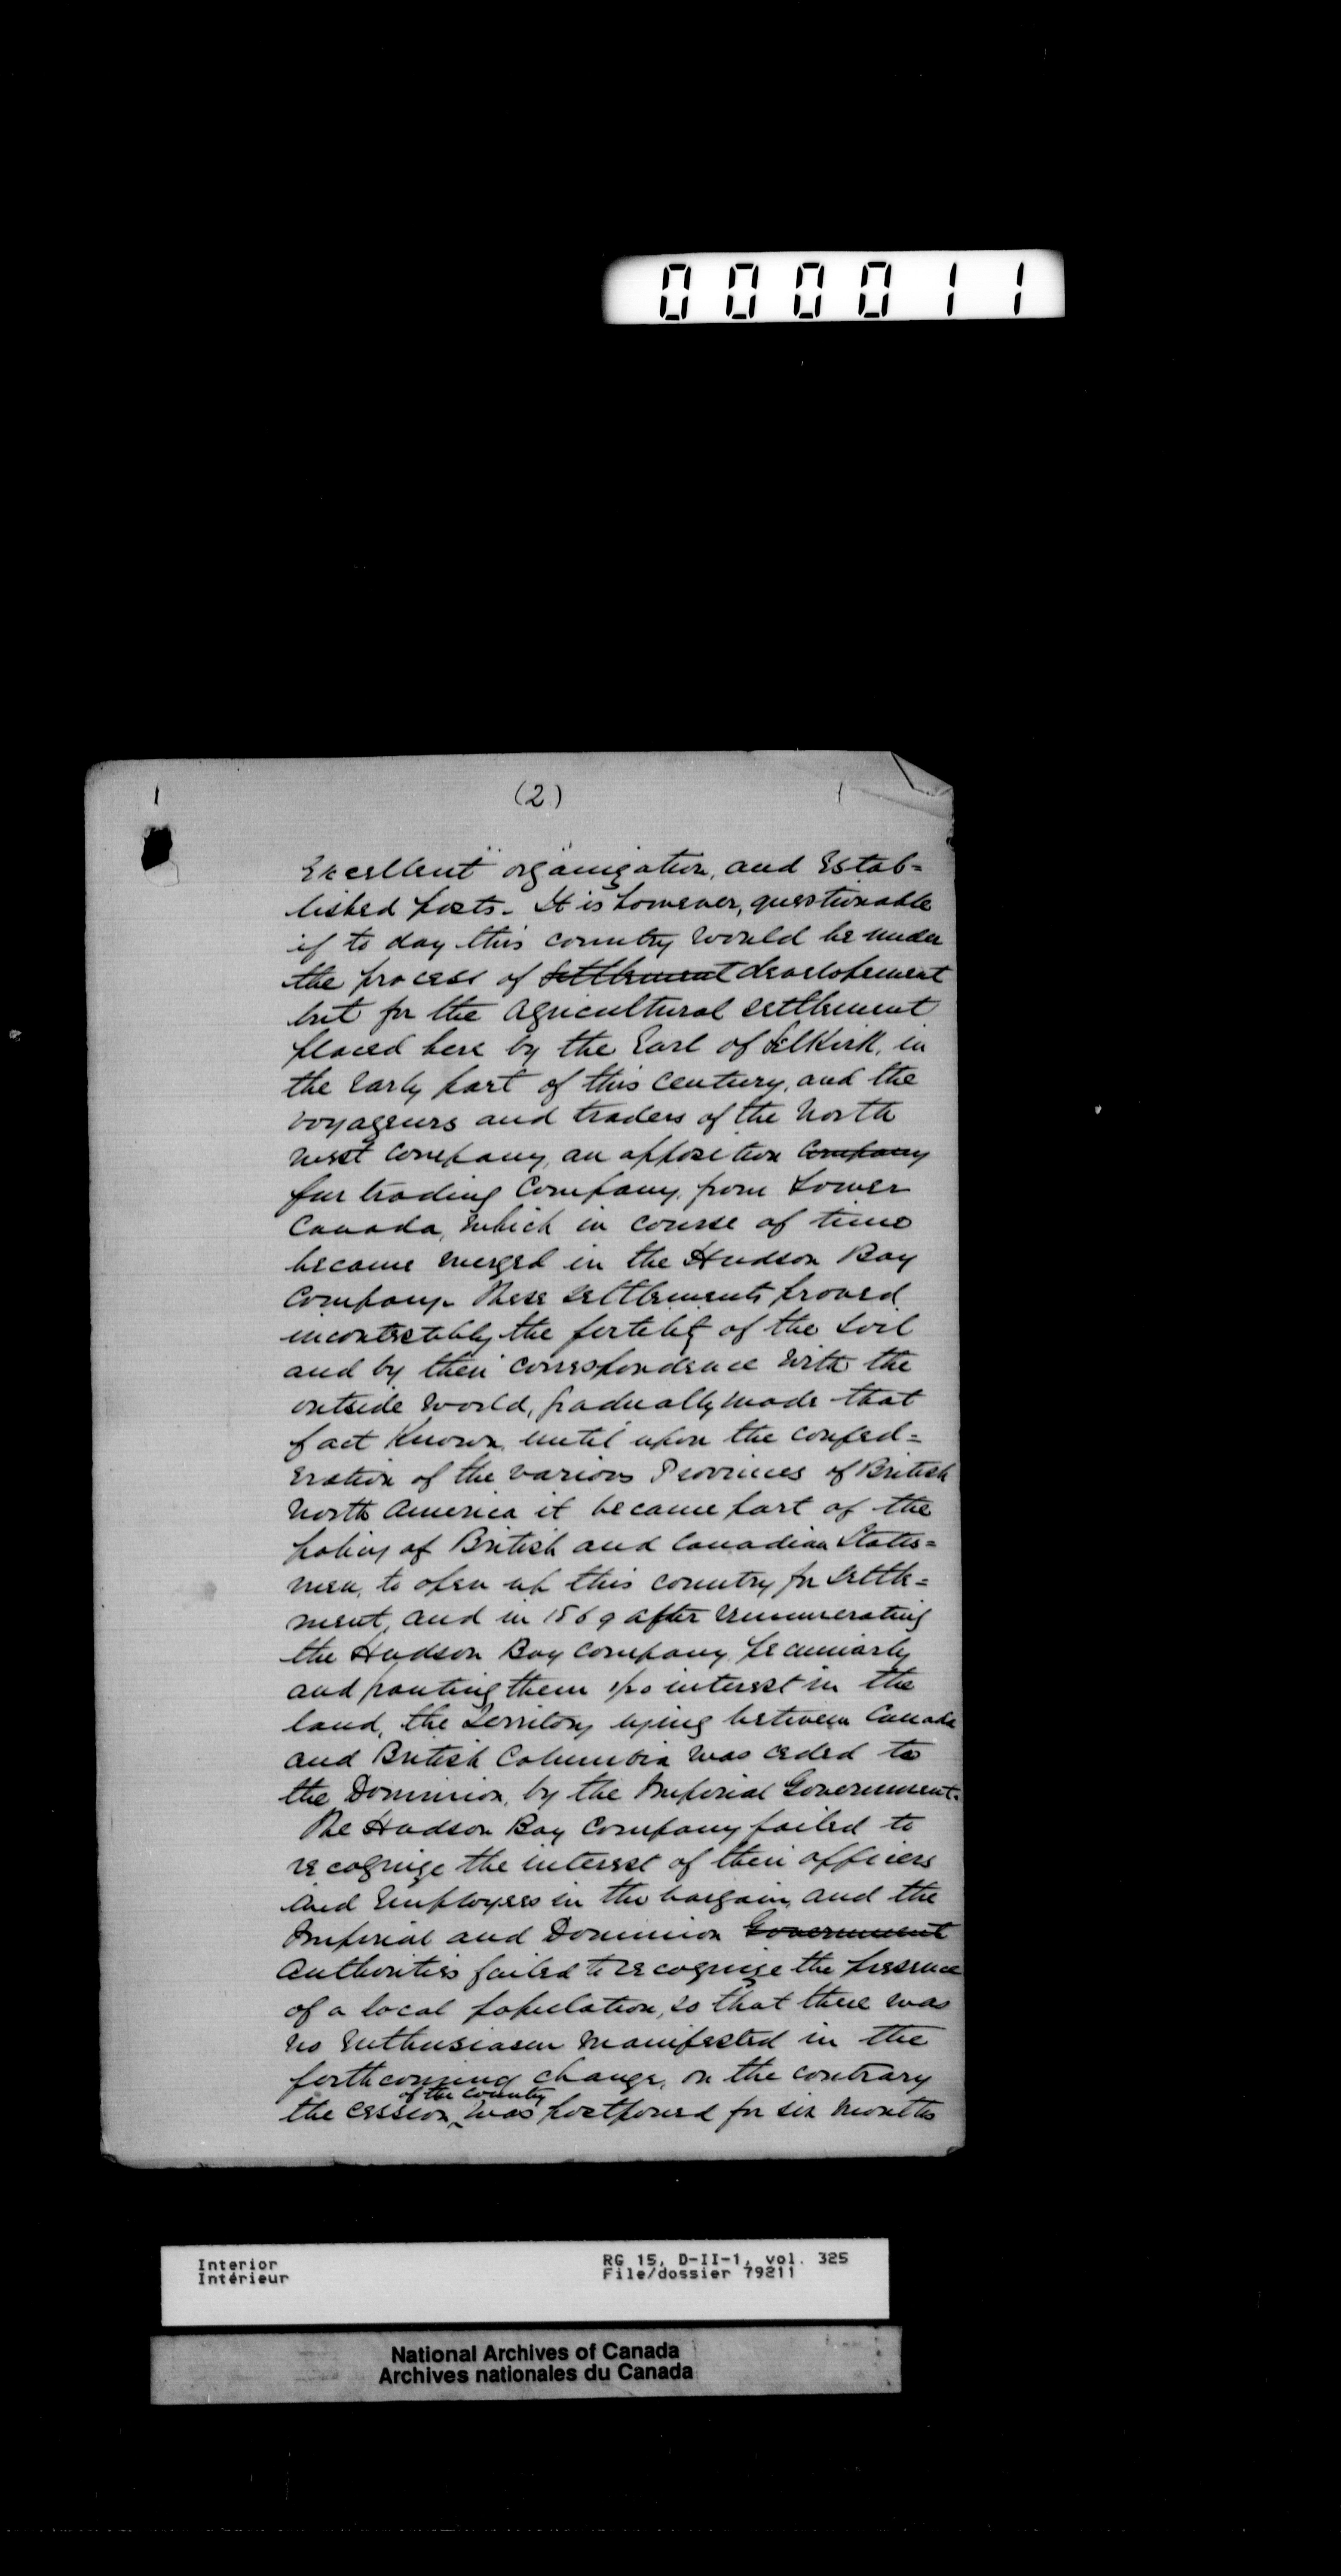 000011
(2)
Excellent organization, and Estab=
lished posts. It is however, questionable
if to day this country would be under
the process of settlement developement
but for the agricultural settlement
placed here by the Earl of Selkirk, in
the Early part of this Century, and the
voyageurs and traders of the North
West Company, an opposition Company
fur trading Company, from Lower
Canada, which in course of time
became merged in the Hudson Bay
Company. These settlements proved
incontestibly the fertility of the soil
and by their correspondence with the
outside world, gradually made that
fact Known, until upon the confed=
eration of the various Provinces of British
North America it became part of the
policy of British and Canadian States=
men, to open up this country for settle=
ment, and in 1869 after remunerating
the Hudson Bay Company pecuniarly
and granting them 1/20 interest in the
land, the Territory lying between Canada
and British Columbia was ceded to
the Dominion, by the Imperial Government.
The Hudson Bay Company failed to
recognize the interest of their officers
and Employees in the bargain, and the
Imperial and Dominion Government
Authorities failed to recognize the presence
of a local population, so that there was
no Enthusiasm manifested in the
forthcoming change, on the contrary
of the country
the cession was postponed for six months
Interior RG 15, D-II-1, vol. 325
Intérieur File/dossier 79211
National Archives of Canada
Archives nationales du Canada